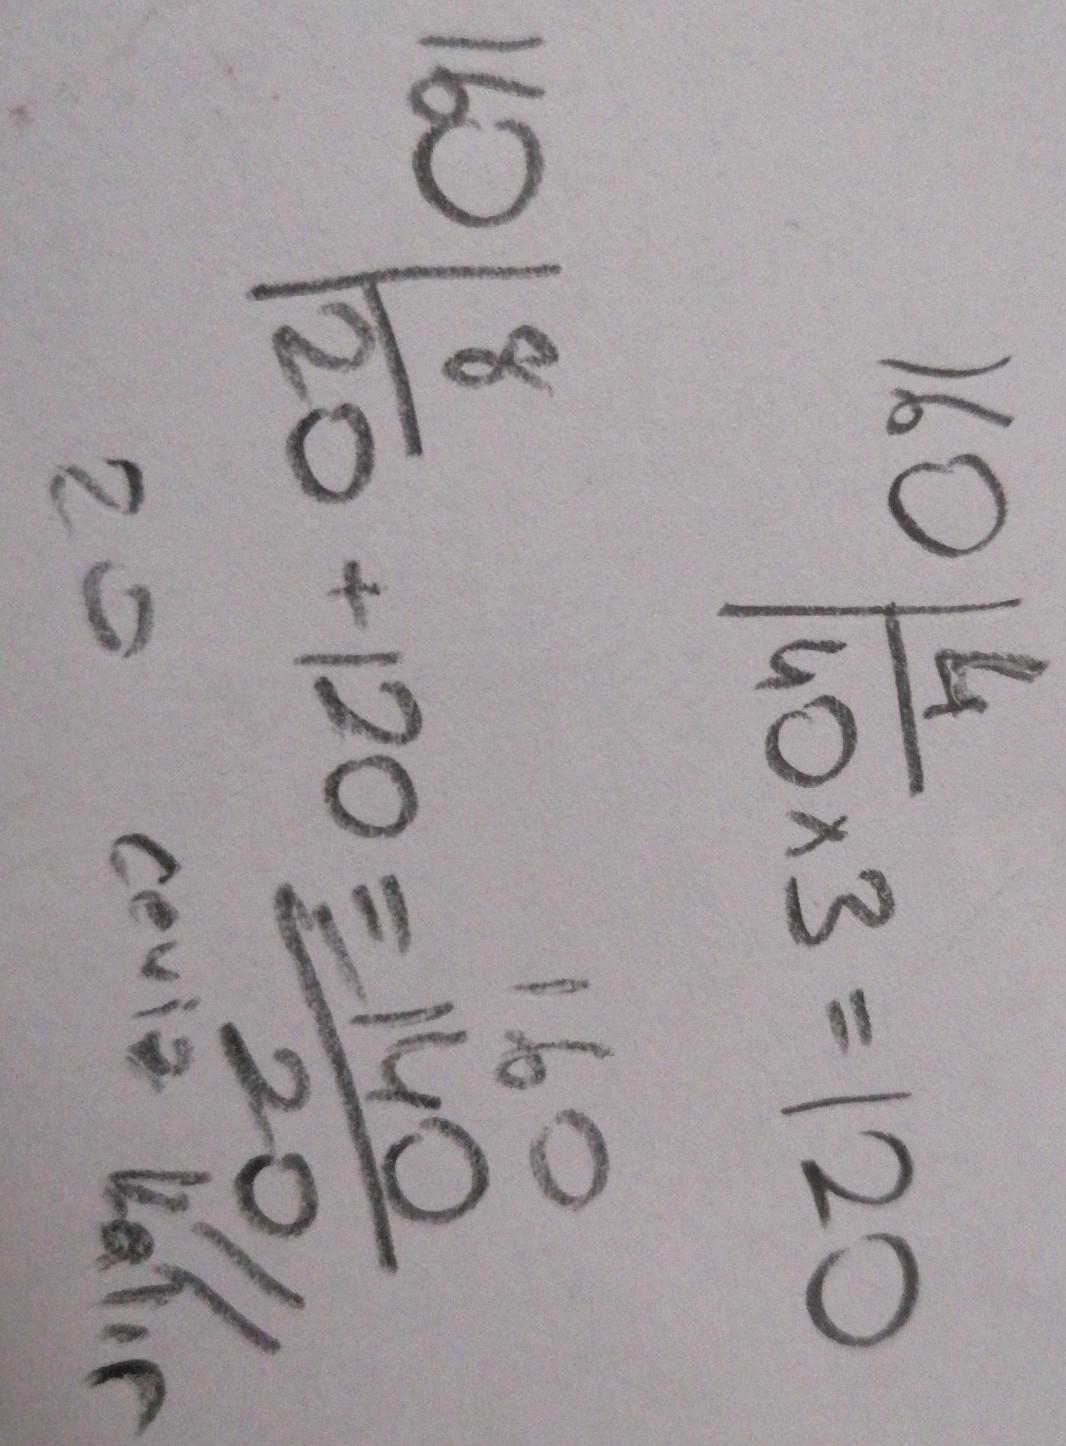 160 | 4
40 x 3 = 120
160 | 8
20 + 120 = 140
160
- 140
20
20 ceviz kalır